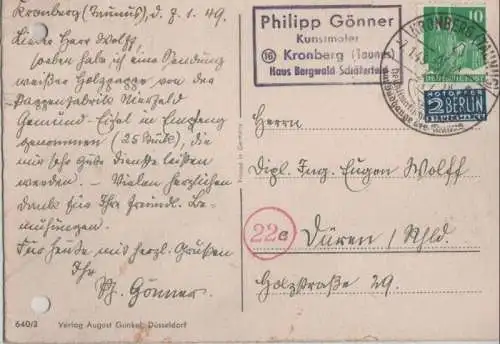 Kronberg (Taunus), d. 7.1.49.
Lieber Herr Wolff!
Soeben habe ich eine Sendung
weißer Holzpappe von der
Pappenfabrik Nierfeld
Gemünd-Eifel in Empfang
genommen (25 Stück), die
mir sehr gute Dienste leisten
werden. – Vielen herzlichen
Dank für Ihre freundl. Be-
mühungen.
Für heute mit herzl. Grüßen
Ihr
Ph. Gönner.
640/2 Verlag August Gunkel, Düsseldorf
Printed in Germany
Philipp Gönner
Kunstmaler
(16) Kronberg (Taunus)
Haus Bergwald-Schäfertal
10
DEUTSCHE POST
KRONBERG (TAUNUS)
NOTOPFER
2 BERLIN
STEUERMARKE
Herrn
Dipl. Ing. Eugen Wolff
22c
Düren / Rhld.
Holzstraße 29.